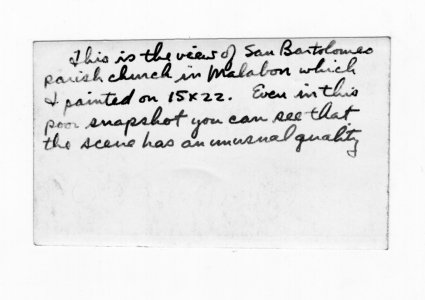 This is the view of San Bartolomeo
parish church in Malabon which
I painted on 15x22. Even in this
poor snapshot you can see that
the scene has an unusual quality